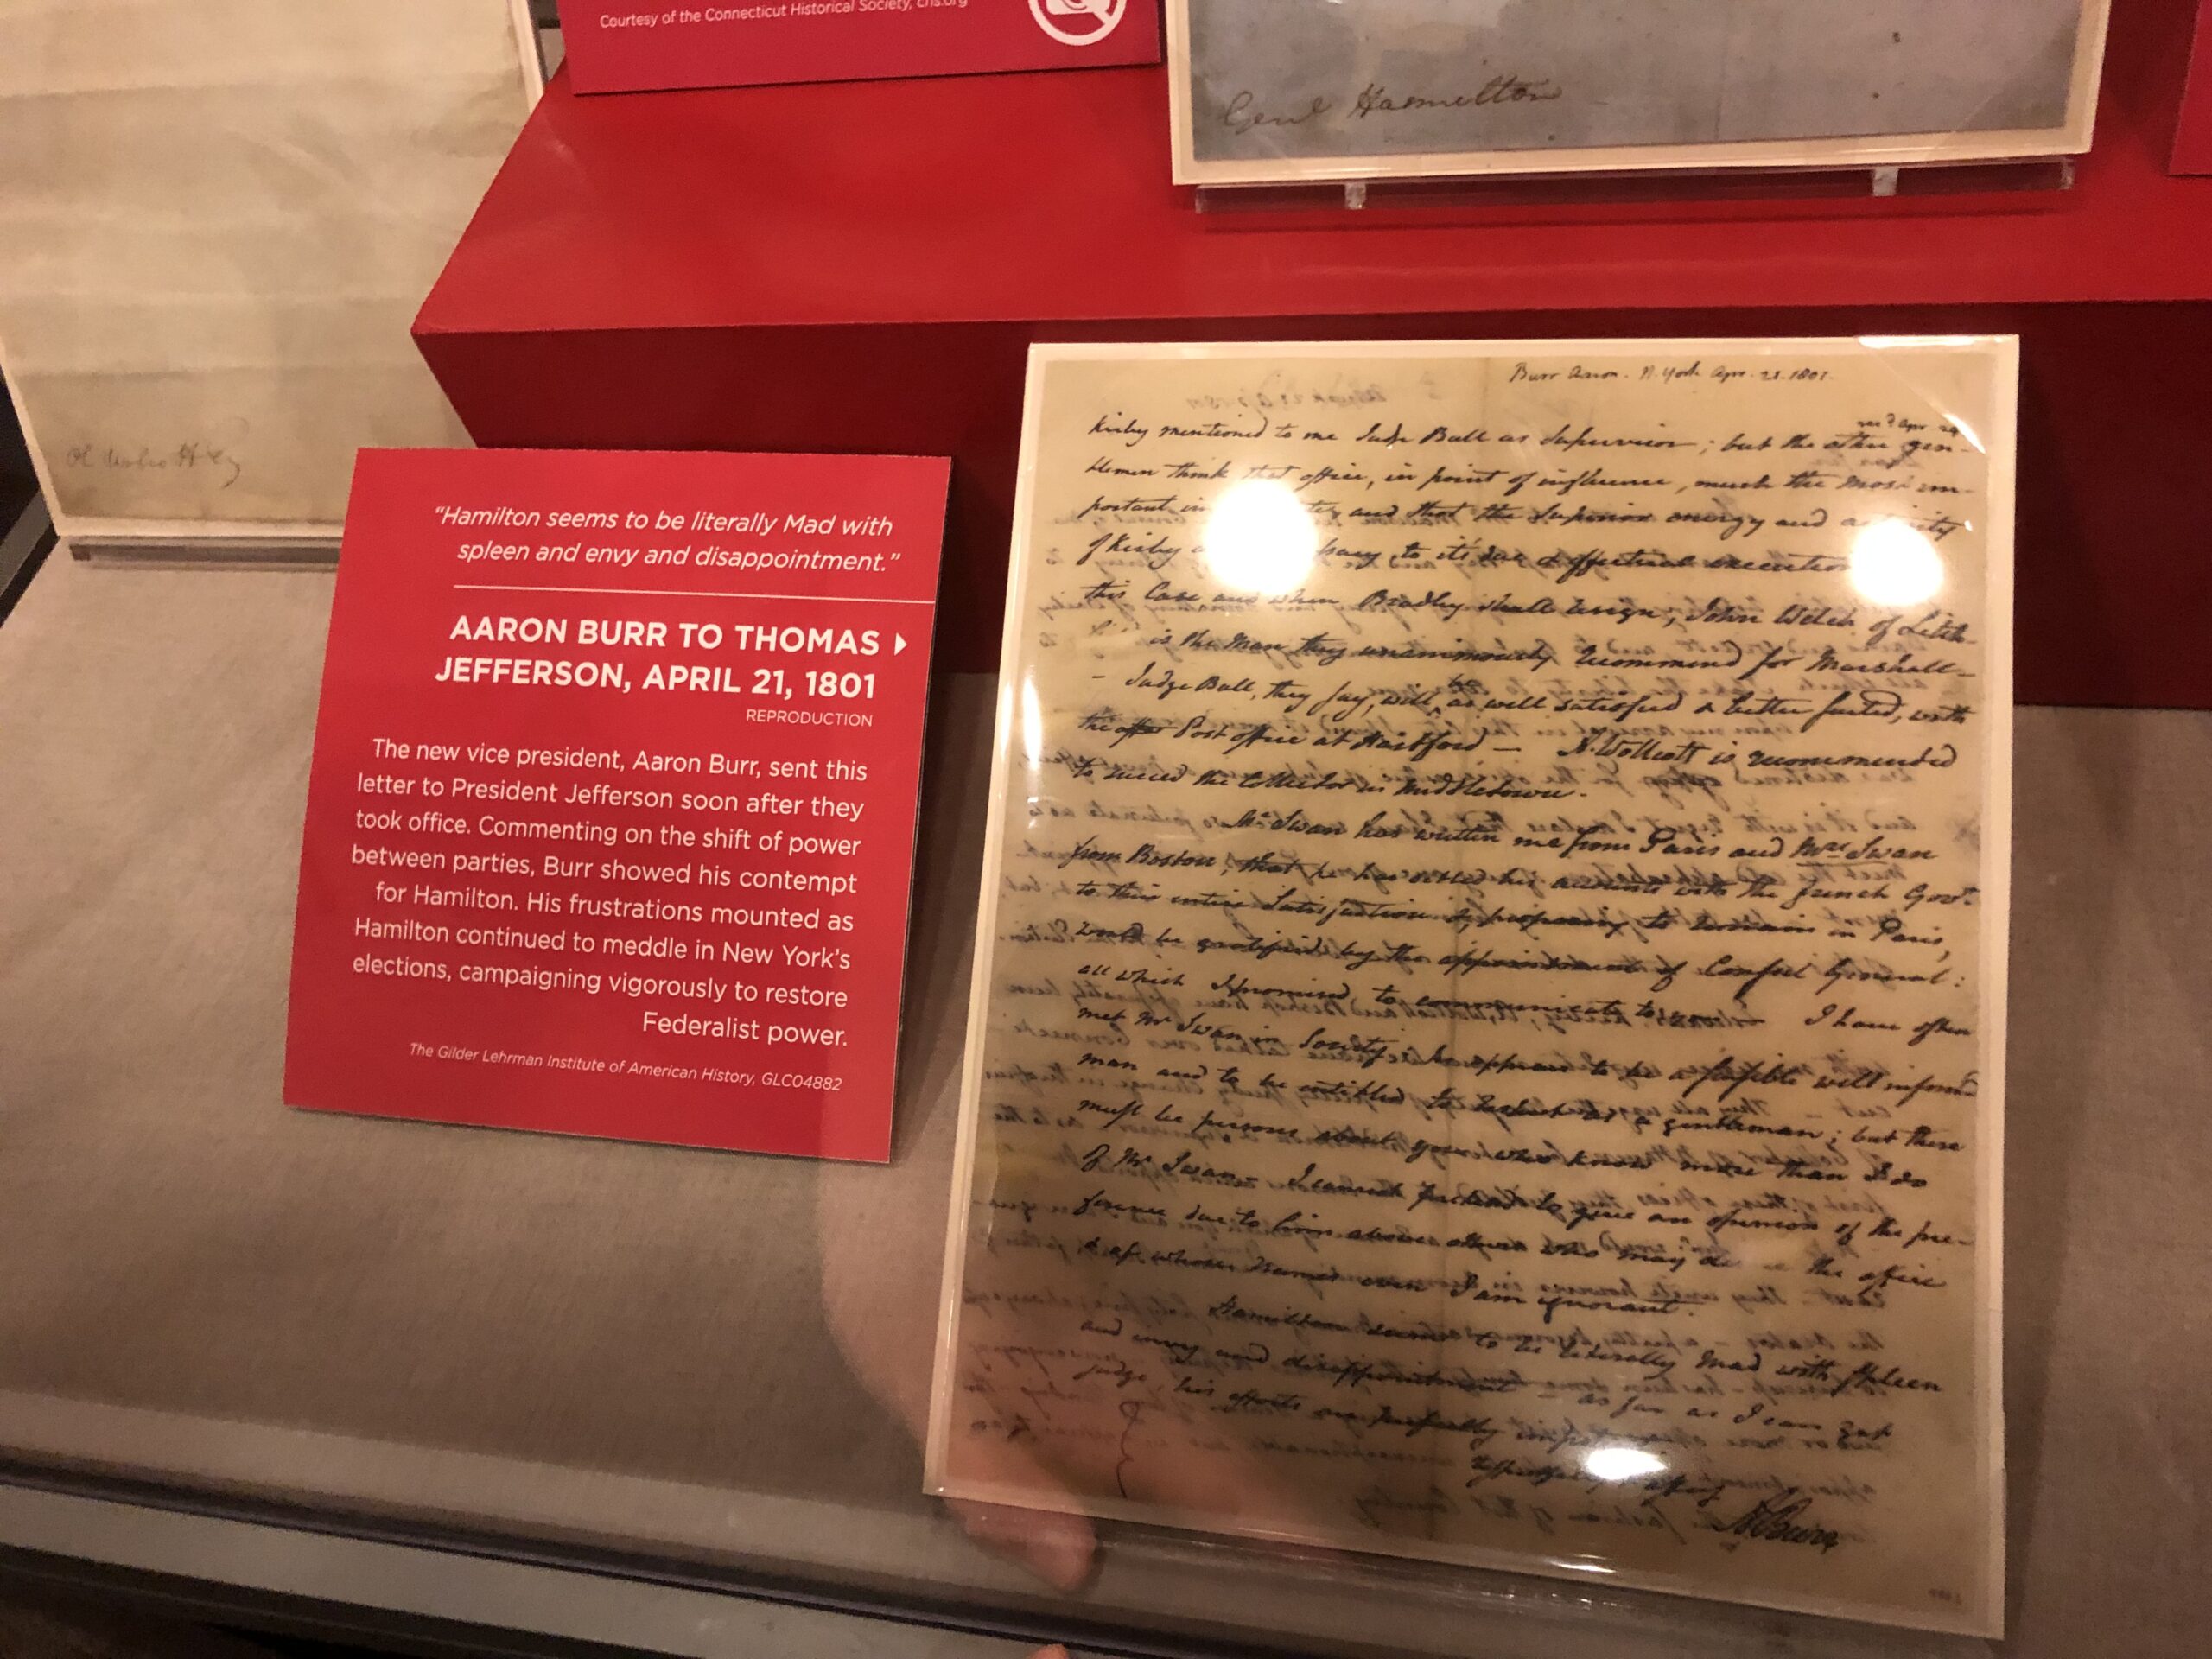 Courtesy of the Connecticut Historical Society, chs.org
Genl Hamilton
"Hamilton seems to be literally Mad with
spleen and envy and disappointment."
AARON BURR TO THOMAS
JEFFERSON, APRIL 21, 1801
REPRODUCTION
The new vice president, Aaron Burr, sent this
letter to President Jefferson soon after they
took office. Commenting on the shift of power
between parties, Burr showed his contempt
for Hamilton. His frustrations mounted as
Hamilton continued to meddle in New York's
elections, campaigning vigorously to restore
Federalist power.
The Gilder Lehrman Institute of American History, GLC04882
Burr Aaron. N. York Apr. 21. 1801.
recd Apr 29
Kirby mentioned to me Judge Bull as Supervisor; but the other gen-
tlemen think that office, in point of influence, much the most im-
portant in and that the Superior energy and activity
of Kirby to it's due & effectual execution
this Case and when Bradley shall resign, John Welch of Litch-
is the Man they unanimously recommend for Marshall—
— Judge Bull, they say, will be as well satisfied & better suited, with
the Post office at Hartford — A. Wollcott is recommended
to succeed the Collector in Middletown.
Mr Swan has written me from Paris and Mrs Swan
from Boston, that he has settled his accounts with the french Govt
to their entire Satisfaction & proposing to remain in Paris,
would be gratified by the appointment of Consul General:
all which I promised to communicate to you — I have often
met Mr Swan in Society; he appears to be a sensible well informd
man and to be entitled to respect as a gentleman; but there
must be persons about you who know more than I do
of Mr Swan — I cannot pretend to give an opinion of the pre-
ference due to him above others who may the office
& of whose names even I am ignorant.
Hamilton seems to be literally Mad with spleen
and envy and disappointment — as far as I can yet
judge his efforts are perfectly
A Burr